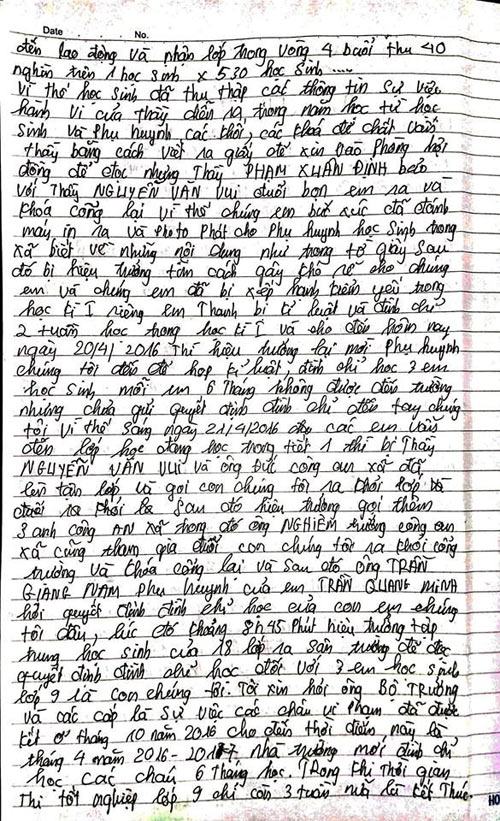 Date No.
đến lao động và phân lớp trong vòng 4 buổi thu 40
nghìn trên 1 học sinh x 530 học sinh ....
Vì thế học sinh đã thu thập các thông tin sự việc
hành vi của Thầy diễn ra, trong năm học từ học
sinh và phụ huynh các thời, các khoá để chất vấn
thầy bằng cách viết ra giấy để xin vào phòng hội
đồng để đọc nhưng Thầy PHẠM XUÂN ĐỊNH bảo
với Thầy NGUYỄN VĂN VUI đuổi bọn em ra và
khoá cổng lại vì thế chúng em bức xúc đã đánh
máy in ra và Photo Phát cho Phụ huynh học sinh trong
xã biết về những nội dung như trong tờ giấy sau
đó bị hiệu trưởng tìm cách gây khó dễ cho chúng
em và chúng em đã bị xếp hạnh kiểm yếu trong
học kì I riêng em Thanh bị kỉ luật và đình chỉ
2 tuần học trong học kì I và cho đến hôm nay
ngày 20/4/2016 Thì hiệu trưởng lại mời Phụ huynh
chúng tôi đến để họp kỉ luật, đình chỉ học 3 em
học sinh mỗi em 6 tháng không được đến trường
nhưng chưa gửi quyết định đình chỉ đến tay chúng
tôi vì thế sáng ngày 21/4/2016 các em vẫn
đến lớp học đang học trong tiết 1 thì bị Thầy
NGUYỄN VĂN VUI và ông Đức công an xã đã
lên tận lớp và gọi con chúng tôi ra khỏi lớp và
đuổi ra khỏi là sau đó hiệu trưởng gọi thêm
3 anh công AN xã trong đó ông NGHIÊM trưởng công an
xã cùng tham gia đuổi con chúng tôi ra khỏi cổng
trường và khóa cổng lại và sau đó ông TRẦN
GIANG NAM phụ huynh của em TRẦN QUANG MINH
hỏi quyết định đình chỉ học của con em chúng
tôi đâu, lúc đó khoảng 8h45 Phút hiệu trưởng tập
trung học sinh của 18 lớp ra sân trường để đọc
quyết định đình chỉ học đối với 3 em học sinh
lớp 9 là con chúng tôi. Tôi xin hỏi ông BỘ TRƯỞNG
và các cấp là sự việc các cháu vi phạm đã được
kết ở tháng 10 năm 2016 cho đến thời điểm này là
tháng 4 năm 2016-2017 nhà trường mới đình chỉ
học các cháu 6 tháng học. Trong khi thời gian
Thi tốt nghiệp lớp 9 chỉ còn 3 tuần nữa là kết Thúc.